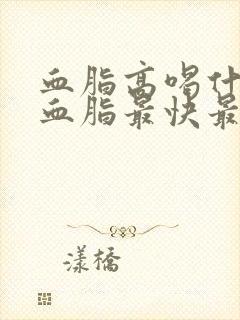 血脂高喝什
血脂最快最
漾橋